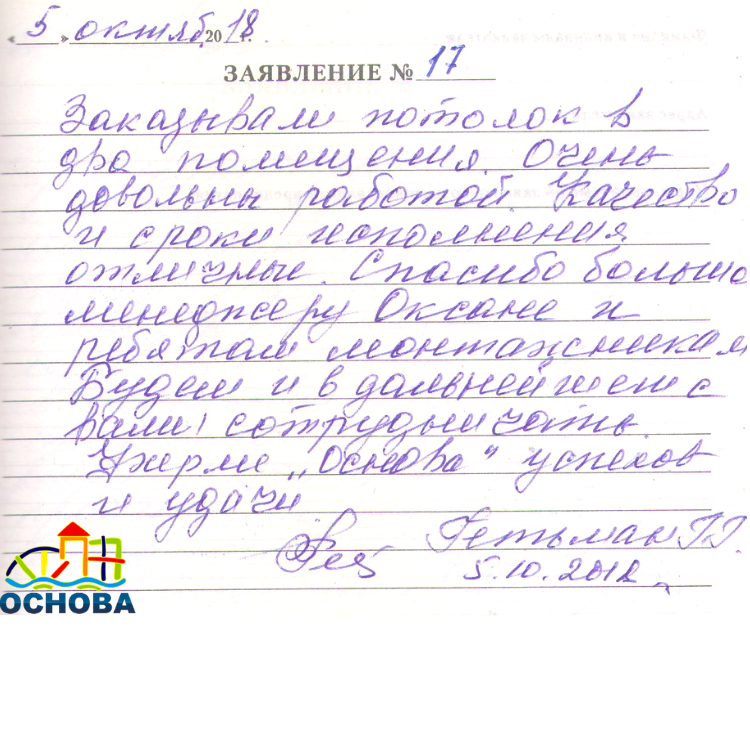 « 5 » октяб. 2018г.
ЗАЯВЛЕНИЕ № 17
Заказывали потолок в
два помещения. Очень
довольны работой. Качество
и сроки исполнения
отличные. Спасибо большо
менеджеру Оксане и
ребятам монтажникам
Будем и в дальнейшем с
вами сотрудничать.
Фирме „Основа" успехов
и удачи
Гетьман Г.Г.
5.10.2018
ОСНОВА